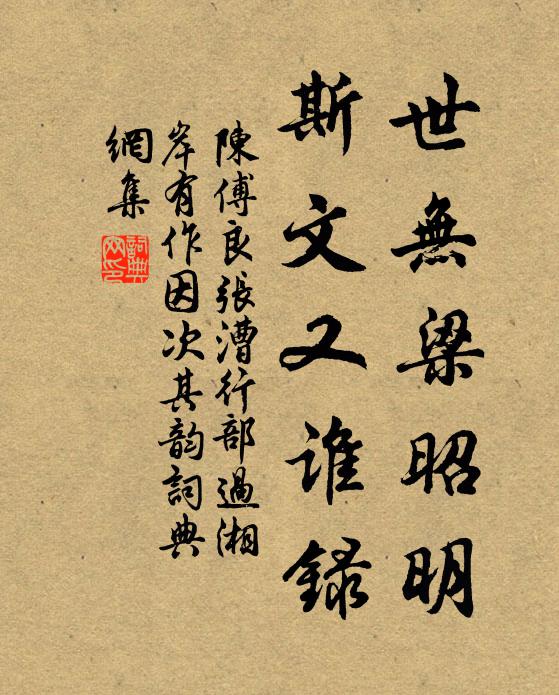 世無梁昭明
斯文又誰録
陳傅良張漕行部過湘
岸有作因次其韵詞典
網集
詞典網印